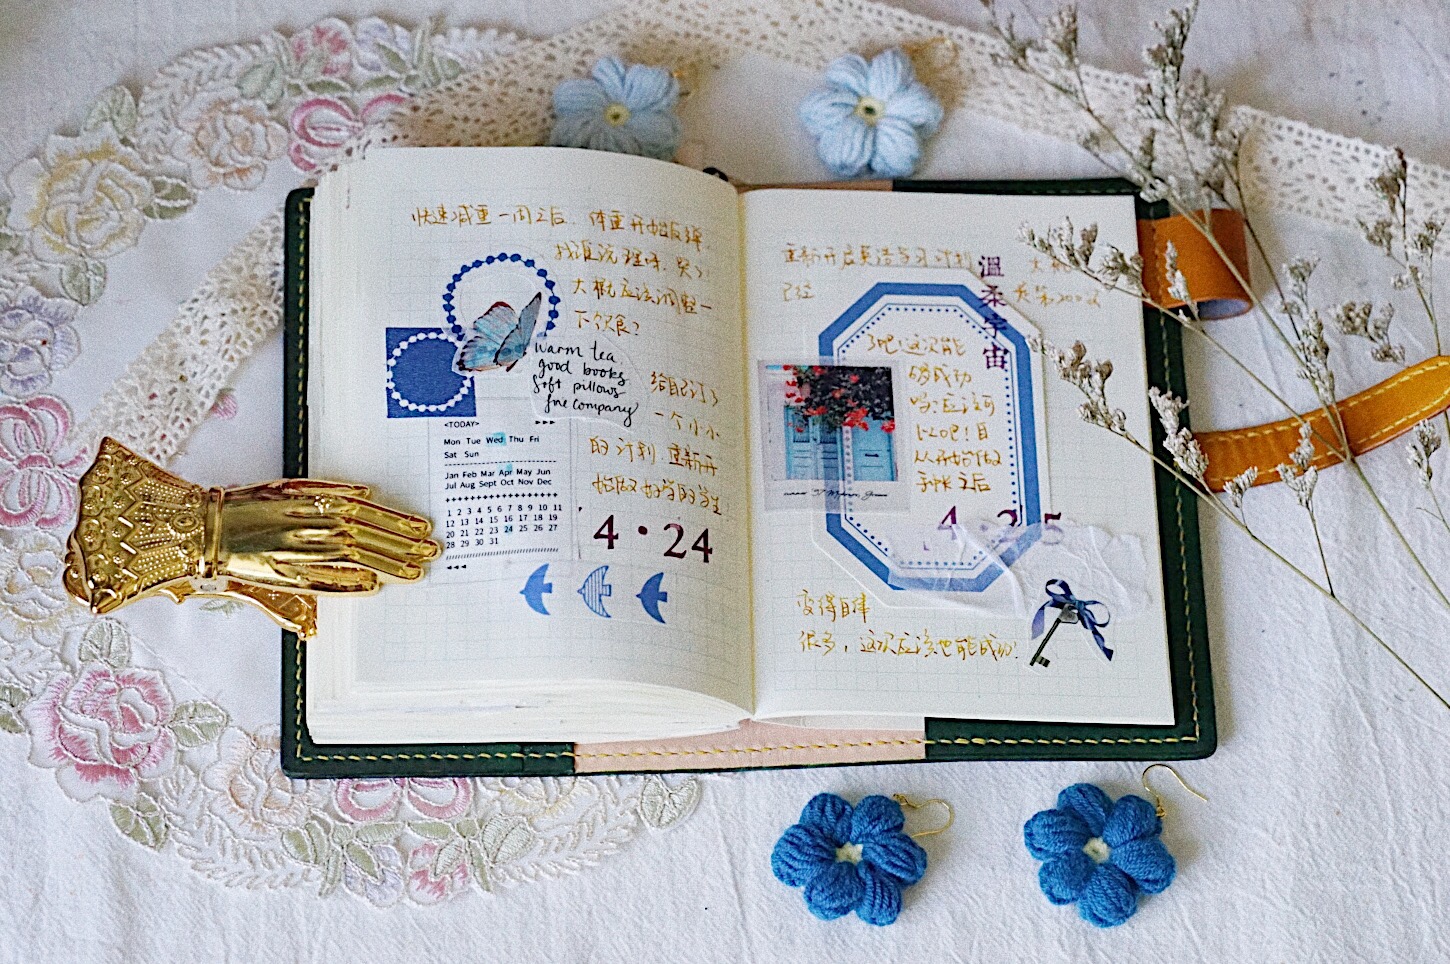 快速减重一周之后,体重开始反弹,
我追究理味,哭了!
大概应该调整一
下饮食?
warm tea,
good books,
soft pillows
fine company
给自己订了
一个小小
的计划,重新开
始做好学的学生
<TODAY>
Mon Tue Wed Thu Fri
Sat Sun
Jan Feb Mar Apr May Jun
Jul Aug Sept Oct Nov Dec
1 2 3 4 5 6 7 8 9 10 11
12 13 14 15 16 17 18 19
20 21 22 23 24 25 26 27
28 29 30 31
4·24
重新开启英语学习计划
大概
已经
是第
温柔宇宙
了吧!这次能
够成功
吗?应该可
以吧!自
从开始做
手帐之后
4·25
变得自律
很多,这次应该也能成功!